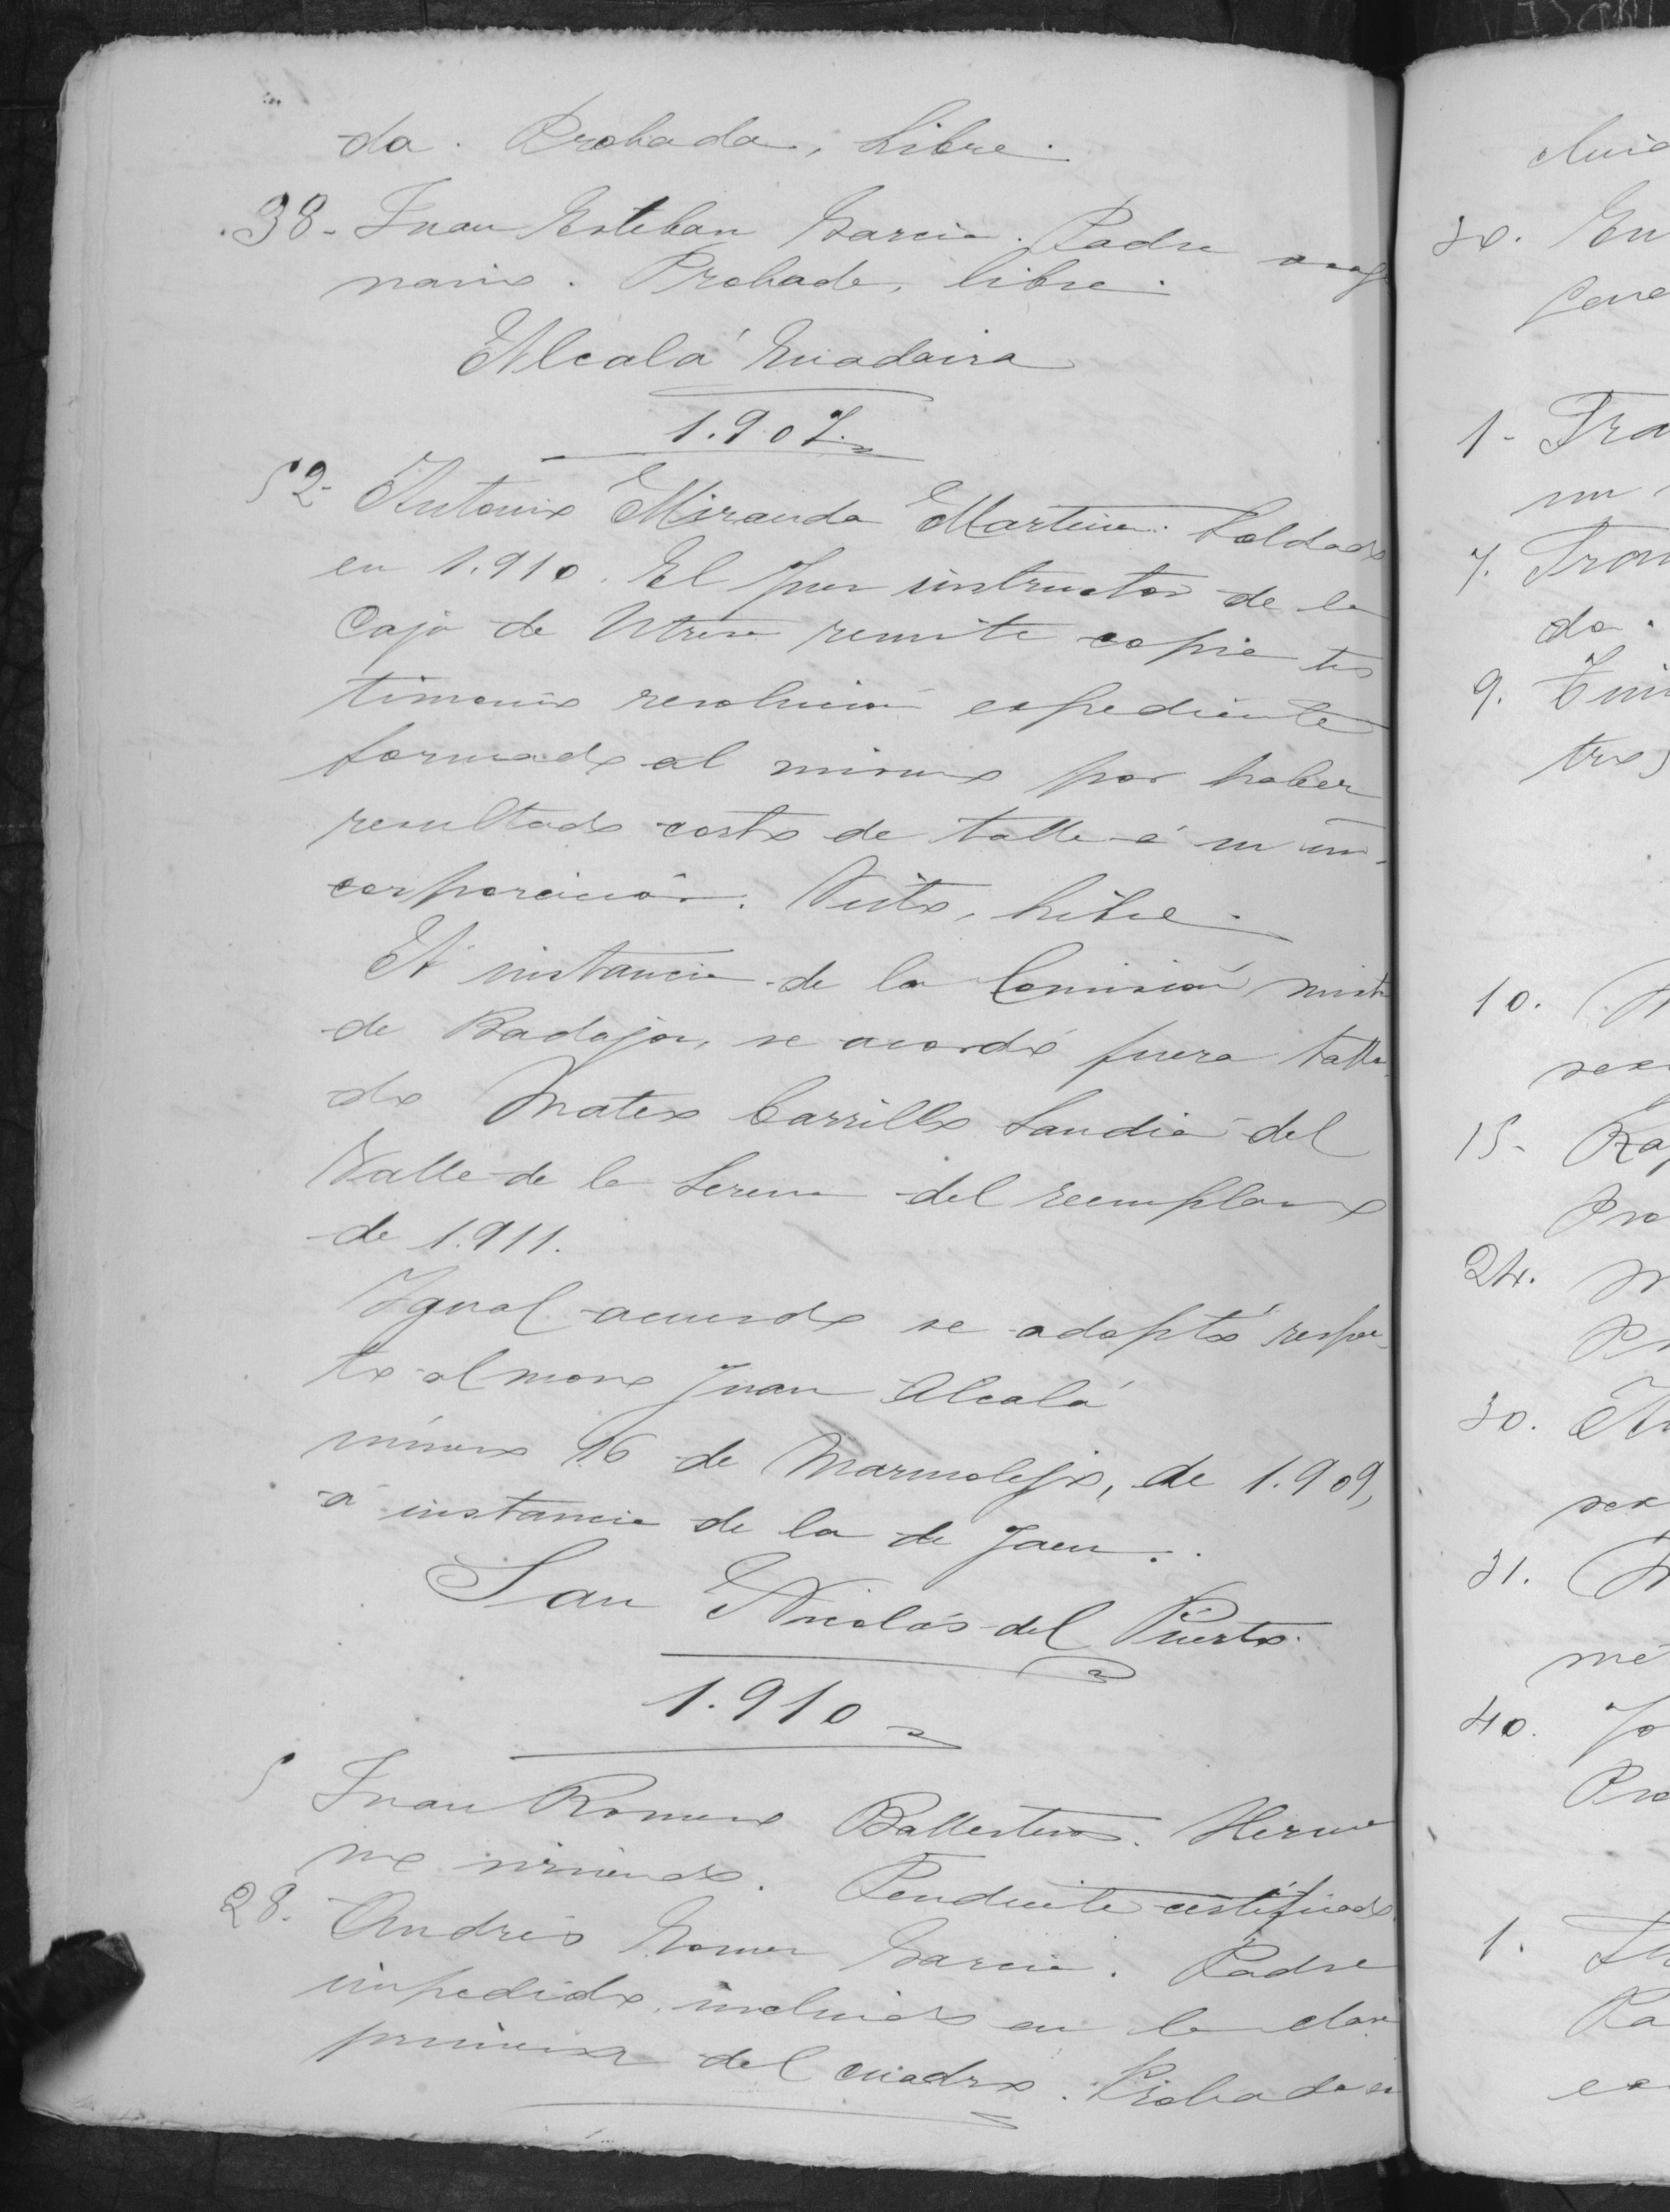 da. Probada, libre.
38- Juan Esteban Garcia. Padre sexage
nario. Probada, libre.
Alcalá Guadaira
1.907.
52- Antonio Miranda Martinez. Soldado
en 1.910. El Juez instructor de la
Caja de Utrera remite copia tes
timonio resolucion expediente
formado al mismo por haber
resultado corto de talla á su in-
corporación. Visto, libre.
A instancia de la Comisión mixta
de Badajoz, se acordó fuera talla
do Mateo Carrillo Sandia del
Valle de la Serena del reemplazo
de 1.911.
Igual acuerdo se adoptó respec-
to al mozo Juan Alcalá
número 16 de Marmolejo, de 1.909,
á instancia de la de Jaen.
San Nicolás del Puerto.
1.910
5 Juan Romero Ballesteros. Herma
no sirviendo. Pendiente certificado
28. Andrés Gomez Garcia. Padre
impedido, incluido en la clase
primera del cuadro. Probada
30. En
1- Fra
7. Fran
da.
9.
tro
10.
15-
Pro
24.
30.
31.
40. Jo
Pro
1.